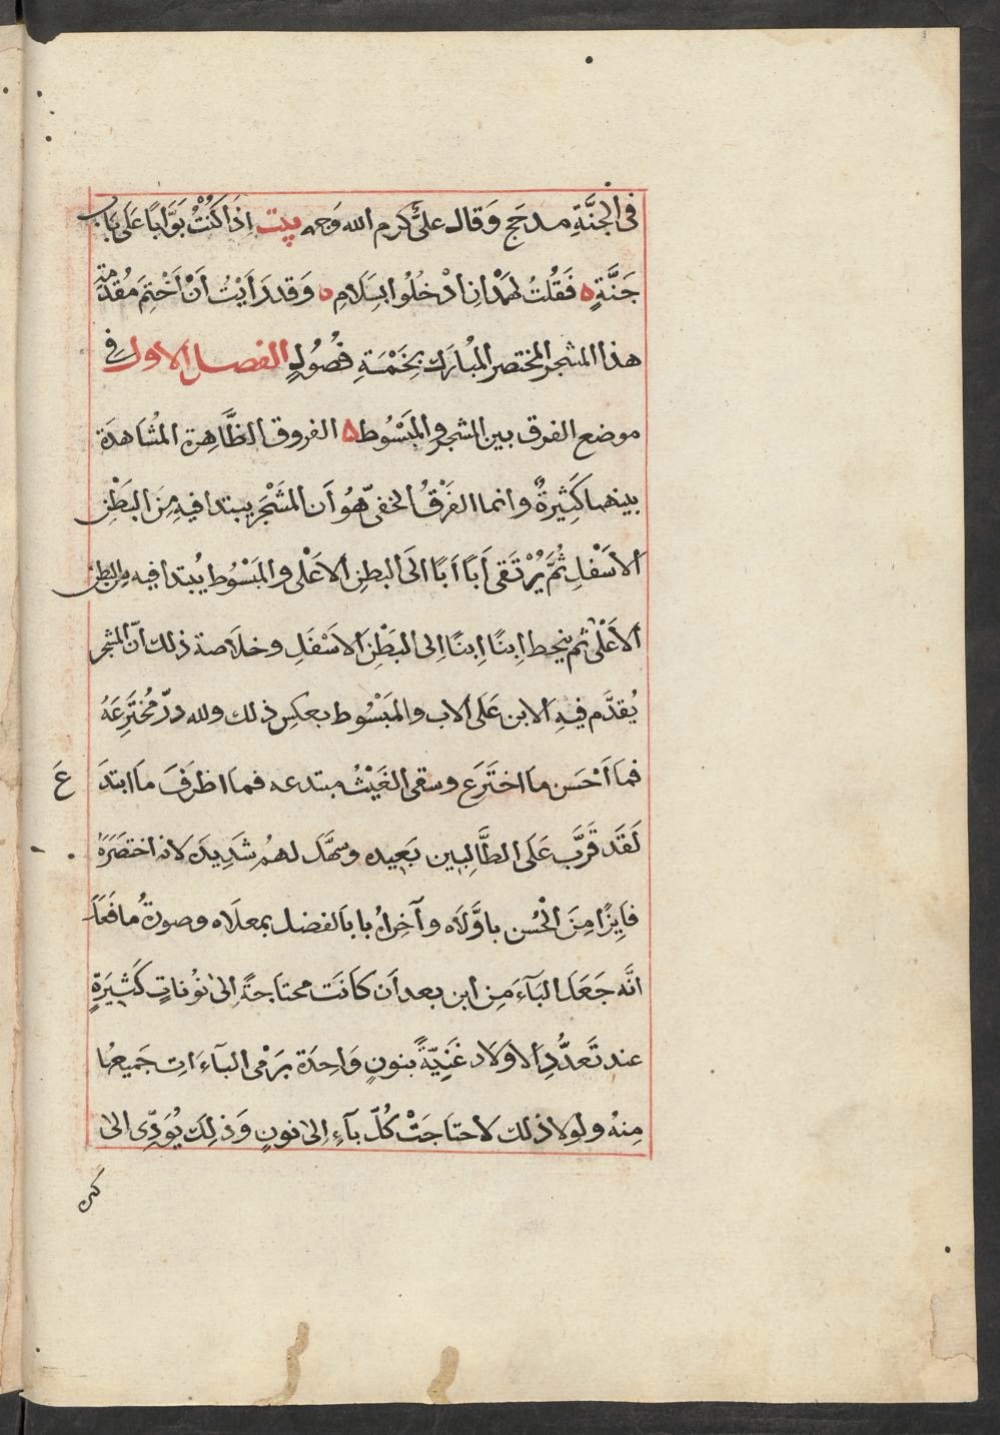 في الجنَّةِ مدحج وَقال عليٌّ كرم الله وَجهه بيت اِذَا كُنْتُ بَوَّابًا عَلَى بَابِ
جَنَّةٍ ه فَقُلْتُ لهَمْدَانِ ادْخُلُوا بِسَلَامِ ه وَقَد رَأيْتُ أَنْ أَخْتِمَ مُقَدِّمَة
هذا المشجر المختصر المُبارَك بِخَمْسَةِ فُصُولٍ الفصل الاول في
موضع الفرق بين المشجر والمَبْسُوط ۵ الفروق الظَّاهِرة المُشاهدَة
بينهما كَثِيرةٌ وانما الفَرْقُ الخفىّ هُوَ أن المشَجَّر يبتدا فيهِ مِنَ البَطْنِ
الأسْفَلِ ثُمَّ يُرْتَقى أَباً أبًا الَى البطنِ الاعْلى والمَبْسُوط يُبتدأ فيه مِن البطن
الأعْلىٰ ثم ينحط اِبنًا اِبنًا اِلى البَطْنِ الاَسْفَلِ وخلاَصة ذلك اَنّ المشجر
يُقدَّم فيهِ الابن عَلى الاب والمَبْسُوط بعكسِ ذلك ولله درّ مُخْتَرِعَهُ
فما اَحْسَن ما اختَرَع وسقى الغَيْثُ مبتدعه فما اظرَفَ مَا ابتدَ عَ
لَقَد قَرَّب عَلَى الطَّالِبين بَعِيده وسَهَّل لهمُ شَدِيدَه لانه اختصَرَهُ
فايزًا مِنَ الحُسْن باوَّلاه وآخِراهُ بابَا الفضل بمعلاه وصورةُ ما فَعَلَ
انَّه جَعَل البَآءَ مِن ابن بعد اَن كانَت محتاجةً اِلىٰ نوُناتٍ كَثِيرَةٍ
عند تَعدُّدِ الاَولاد غَنِيّةً بنونٍ وَاحِدَة بَرَمى البآءَاتِ جَميعهَا
مِنهُ ولولا ذلك لاَحتاجَتْ كُلّ بَآءٍ اِلىٰ نونٍ وَذلِكَ يُوَدِّى الىٰ